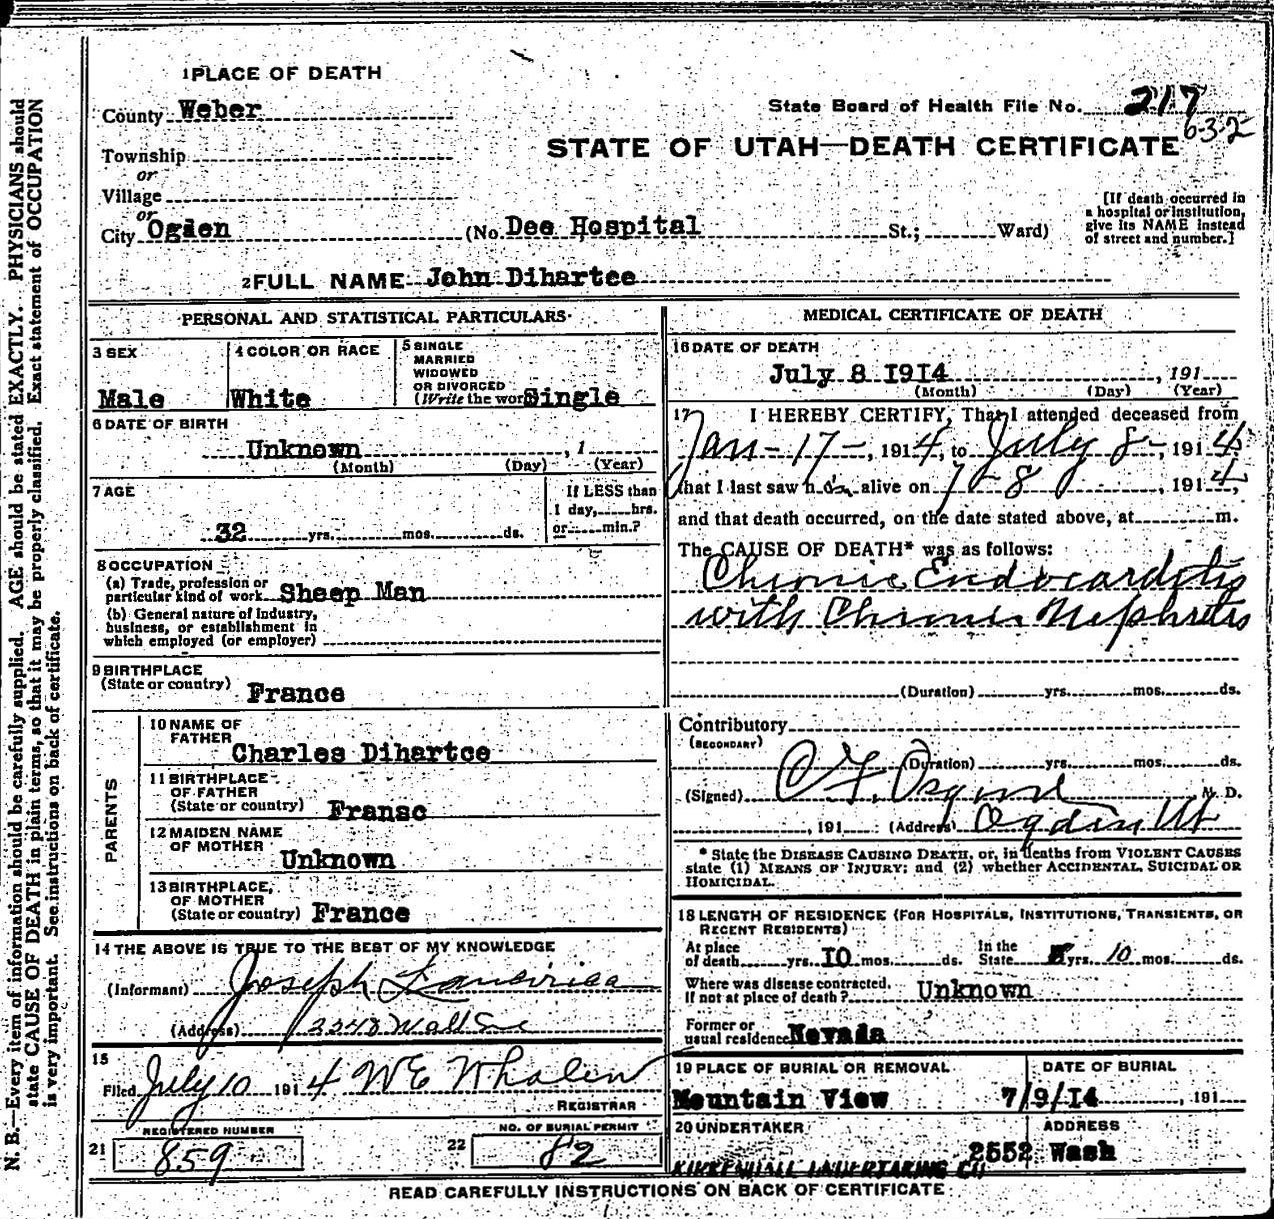 N. B.—Every item of information should be carefully supplied. AGE should be stated EXACTLY. PHYSICIANS should
state CAUSE OF DEATH in plain terms, so that it may be properly classified. Exact statement of OCCUPATION
is very important. See instructions on back of certificate.
1 PLACE OF DEATH
County Weber
State Board of Health File No. 217
632
STATE OF UTAH—DEATH CERTIFICATE
Township
or
Village
or
City Ogden (No. Dee Hospital St.; Ward)
[If death occurred in
a hospital or institution,
give its NAME instead
of street and number.]
2 FULL NAME John Dihartce
PERSONAL AND STATISTICAL PARTICULARS
3 SEX
Male
4 COLOR OR RACE
White
5 SINGLE
MARRIED
WIDOWED
OR DIVORCED
(Write the word) Single
6 DATE OF BIRTH
Unknown , 1
(Month) (Day) (Year)
7 AGE
32 yrs. mos. ds.
If LESS than
1 day, hrs.
or min.?
8 OCCUPATION
(a) Trade, profession or
particular kind of work Sheep Man
(b) General nature of industry,
business, or establishment in
which employed (or employer)
9 BIRTHPLACE
(State or country) France
PARENTS
10 NAME OF
FATHER
Charles Dihartce
11 BIRTHPLACE
OF FATHER
(State or country) Fransc
12 MAIDEN NAME
OF MOTHER
Unknown
13 BIRTHPLACE,
OF MOTHER
(State or country) France
14 THE ABOVE IS TRUE TO THE BEST OF MY KNOWLEDGE
(Informant) Joseph
(Address) Wall
15
Filed July 10 1914 W E Whalen
REGISTRAR
REGISTERED NUMBER
21 859
NO. OF BURIAL PERMIT
22 82
MEDICAL CERTIFICATE OF DEATH
16 DATE OF DEATH
July 8 1914 , 191
(Month) (Day) (Year)
17 I HEREBY CERTIFY, That I attended deceased from
Jan - 17 -, 1914, to July 8 -, 1914,
that I last saw him alive on 7 - 8, 1914,
and that death occurred, on the date stated above, at m.
The CAUSE OF DEATH* was as follows:
Chronic Endocarditis
with Chronic Nephritis
(Duration) yrs. mos. ds.
Contributory
(SECONDARY)
(Duration) yrs. mos. ds.
(Signed) Osgood M. D.
, 191 (Address) Ogden Ut
* State the DISEASE CAUSING DEATH, or, in deaths from VIOLENT CAUSES
state (1) MEANS OF INJURY; and (2) whether ACCIDENTAL, SUICIDAL OR
HOMICIDAL.
18 LENGTH OF RESIDENCE (FOR HOSPITALS, INSTITUTIONS, TRANSIENTS, OR
RECENT RESIDENTS)
At place
of death yrs. 10 mos. ds.
In the
State yrs. 10 mos. ds.
Where was disease contracted,
if not at place of death? Unknown
Former or
usual residence Nevada
19 PLACE OF BURIAL OR REMOVAL
Mountain View
DATE OF BURIAL
7/9/14 , 191
20 UNDERTAKER
KIRKENDALL UNDERTAKING CO
ADDRESS
2552 Wash
READ CAREFULLY INSTRUCTIONS ON BACK OF CERTIFICATE